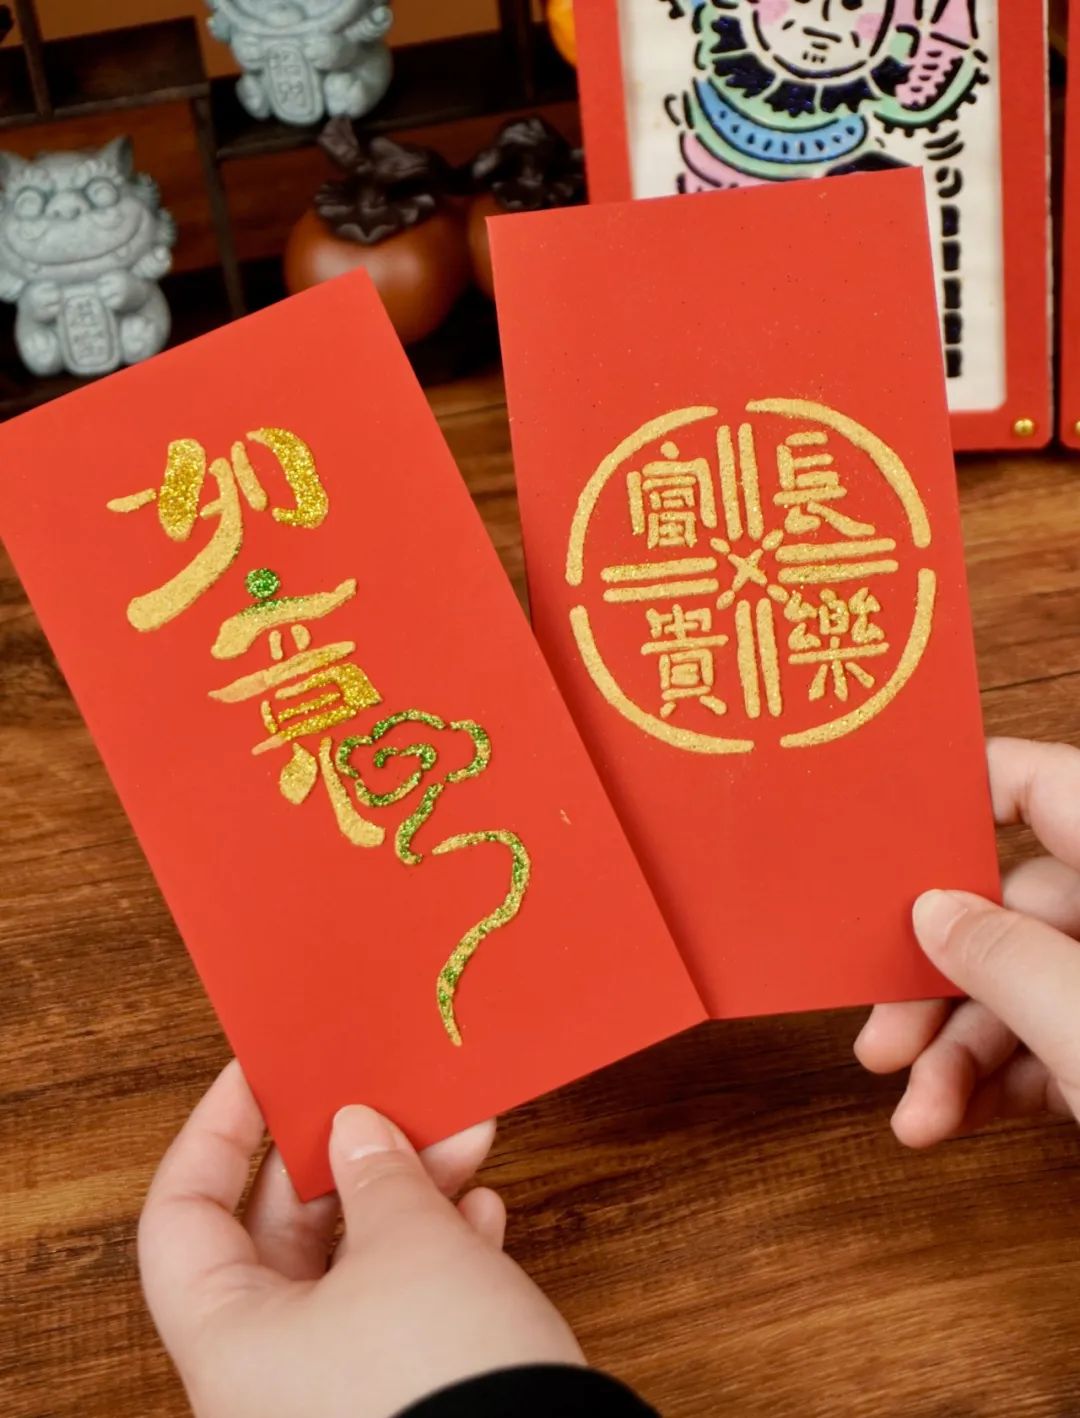 如意
富長
貴樂